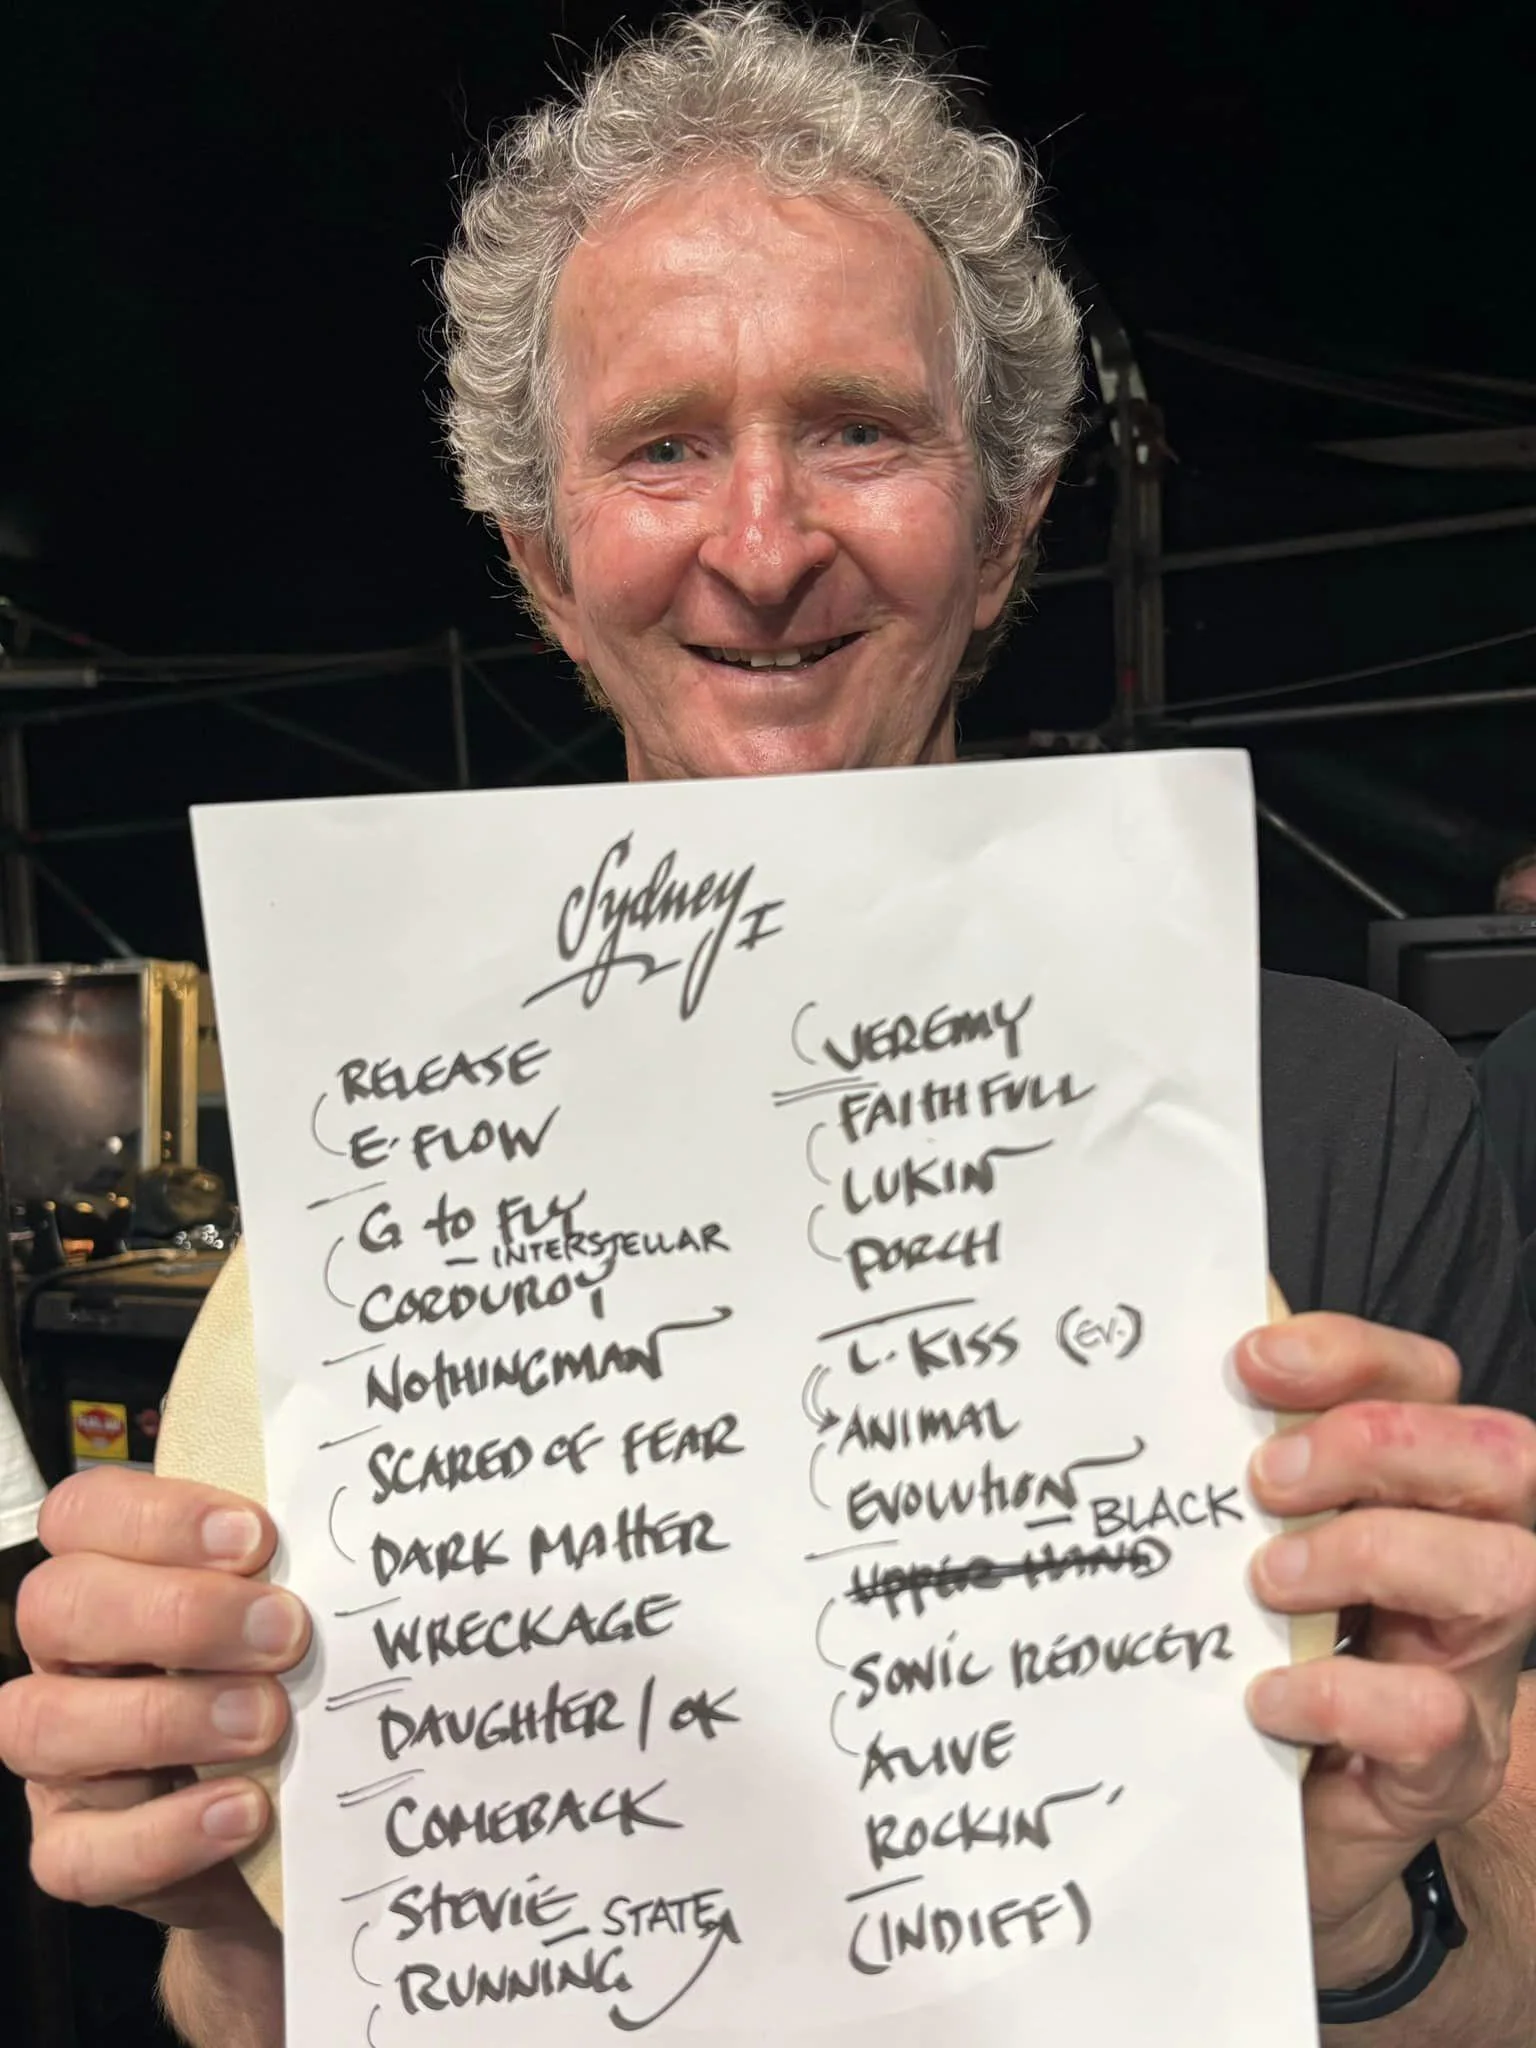 Sydney I
RELEASE
E. FLOW
G to FLY
– INTERSTELLAR
CORDUROY
NOTHINGMAN
SCARED OF FEAR
DARK MATTER
WRECKAGE
DAUGHTER / OK
COMEBACK
STEVIE
– STATE
RUNNING
JEREMY
FAITHFULL
LUKIN
PORCH
L. KISS (EV.)
ANIMAL
EVOLUTION
– BLACK
UPPER HAND
SONIC REDUCER
ALIVE
ROCKIN'
(INDIFF)